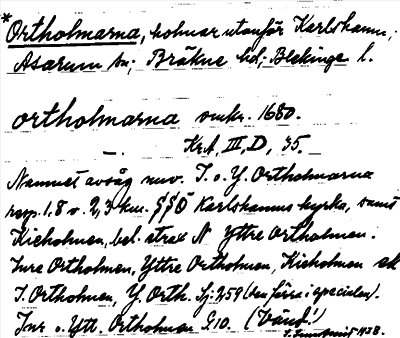 *Ortholmarna, holmar utanför Karlshamn,
Asarum sn; Bräkne hd; Blekinge l.
ortholmarna omkr. 1680.
— Kr.A. III, D, 35.
Namnet avsåg nuv. I. o. Y. Ortholmarna
resp. 1,8 o. 2,3 km. SSÖ Karlshamns kyrka, samt
Kieholmen, bel. strax N Yttre Ortholmen.
Inre Ortholmen, Yttre Ortholmen, Kieholmen ek
I. Ortholmen, Y. Orth. Sj. 259 (den förra i specialen).
Inr. o. Ytt. Ortholmen G10. (Vänd!)
1938.